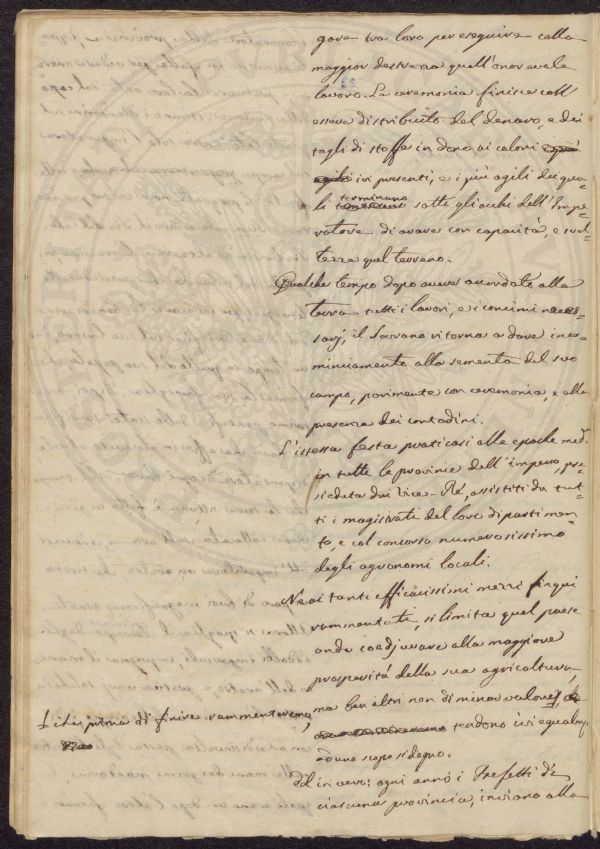 gava tra loro per eseguire colla
maggior destrezza quell'onorevole
lavoro. La ceremonia finisce coll'
essere distribuito del denaro, e dei
tagli di stoffe in dono ai coloni
ivi presenti, e i più agili dei qua=
li terminano sotto gli occhi dell'Impe=
ratore di arare con capacità, e svel=
tezza quel terreno.
Qualche tempo dopo avere accordato alla
terra tutti i lavori, e i concimi neces=
sarj, il Sovrano ritorna a dare inco=
minciamento alla sementa del suo
campo, parimente con ceremonia, e alla
presenza dei contadini.
L'istessa festa praticasi alle epoche med.
in tutte le province dell'impero, pre=
siedeta dai Vice-Ré, assistiti da tut=
ti i magistrati del loro dipartimen=
to, e col concorso numerosissimo
degli agronomi locali.
Ne ai tanti efficacissimi mezzi finqui
rammentati, si limita quel paese
onde coadjuvare alla maggiore
prosperità della sua agricoltura,
ma ben altri non di minor valore
che prima di finire rammenteremo,
tendono ivi egualm.
ad uno scopo sì degno.
Ed in vero: ogni anno i Prefetti di
ciascuna provincia, inviano alla